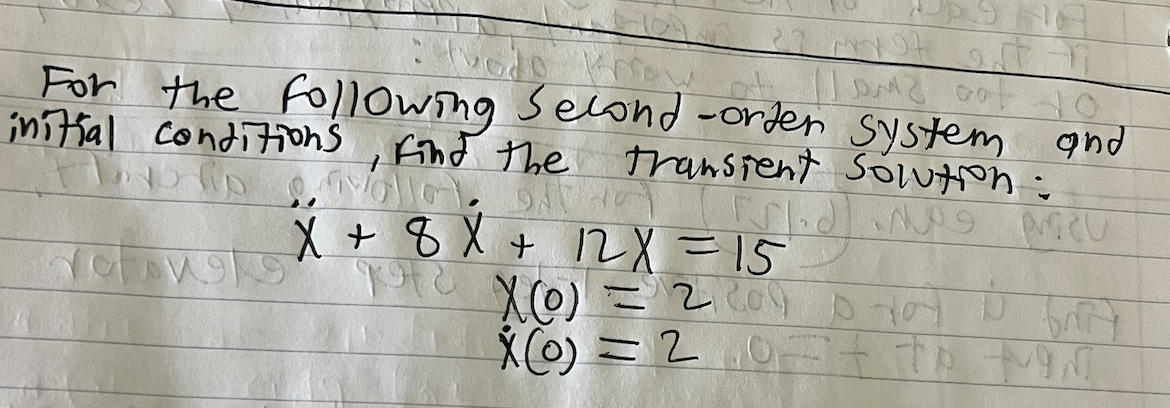 For the following second-order system and
initial conditions, find the transient solution:
ẍ + 8ẋ + 12x = 15
x(0) = 2
ẋ(0) = 2